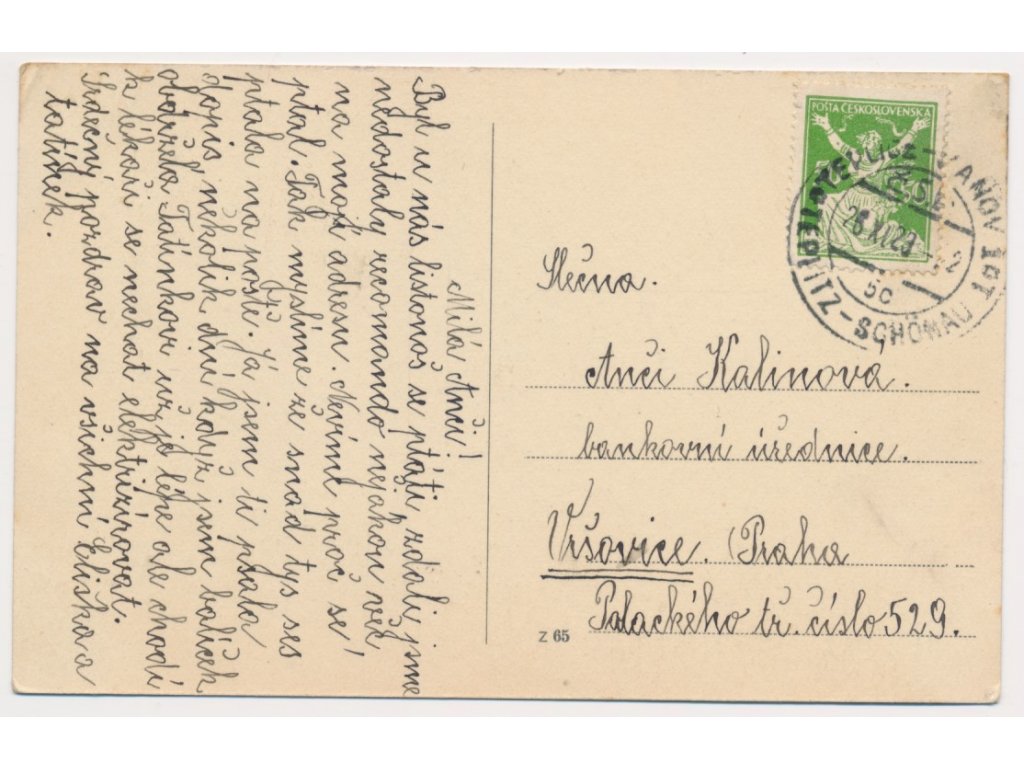 Milá Anči!
Byl u nás listonoš se ptáti, zdali jsme
nedostaly recomando nejakou věc
na moji adresu. Nevíme proč se
ptal. Tak myslíme že snad tys ses
ptala na poště. Já jsem ti psala
dopis několik dní když jsem balíček
obdržela Tatínkovi už je lépe ale chodí
k lékaři se nechat elektrizírovat.
Srdečný pozdrav na všichni Eliška a
tatíček.
POŠTA ČESKOSLOVENSKÁ
TEPLICE-ŠANOV 1
TEPLITZ-SCHÖNAU 1
5c
Slečna.
Anči Kalinova.
bankovní úřednice.
Vršovice. Praha
Palackého tř. číslo 529.
Z 65